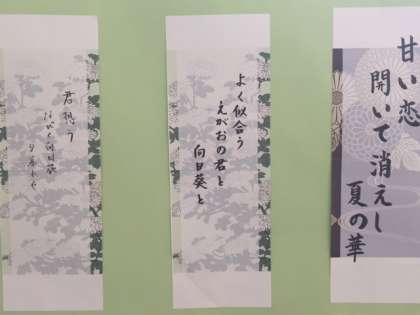 甘い恋
開いて消えし
夏の華
よく似合う
えがおの君と
向日葵と
君想う